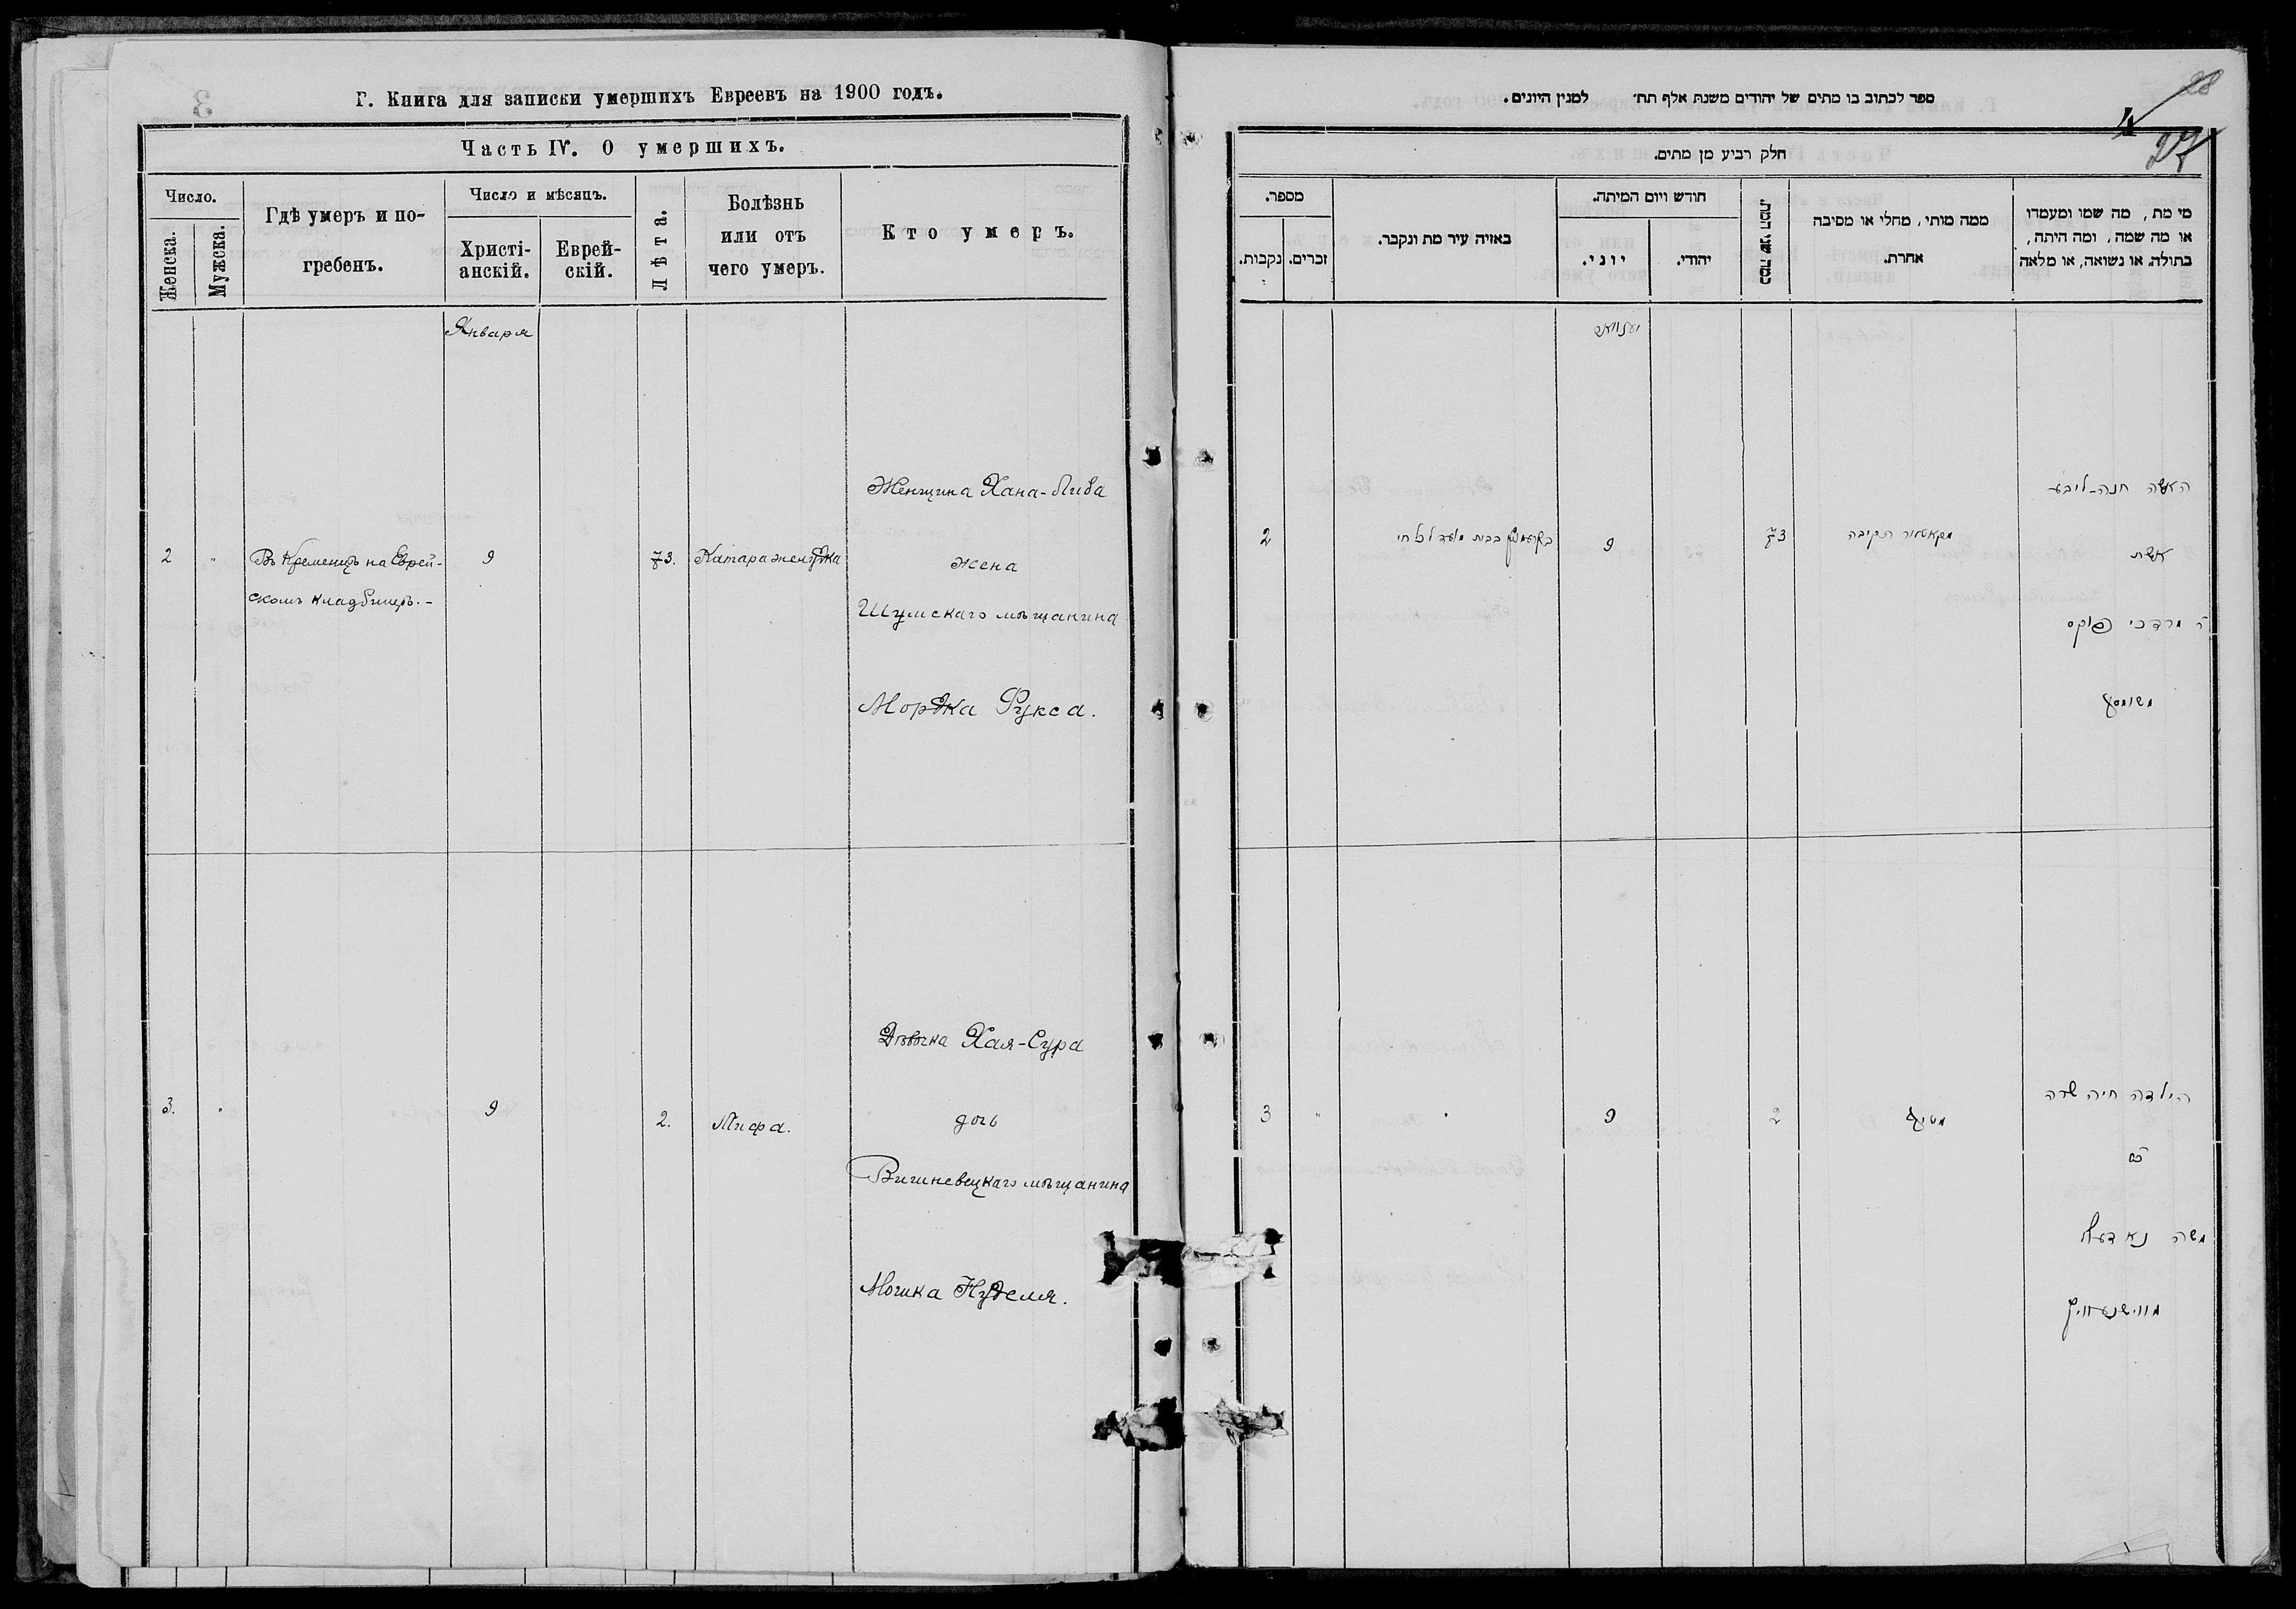 Г. Книга для записки умершихъ Евреевъ на 1900 годъ.
Часть IV. О умершихъ.
Число.
Женска.
Мужска.
Гдѣ умеръ и по-
гребенъ.
Число и мѣсяцъ.
Христі-
анскій.
Еврей-
скій.
Лѣта.
Болѣзнь
или отъ
чего умеръ.
Кто умеръ.
Января
2 " Въ Кременцѣ на Еврей-
скомъ кладбищѣ.-
9
73.
Катара желудка
Женщина Хана-Либа
жена
Шумскаго мѣщанина
Мордка Фукса.
3. "
9
2.
Тифа.
Дѣвочка Хая-Сура
дочь
Вишневецкаго мѣщанина
Мошка Нуделя.
ספר לכתוב בו מתים של יהודים משנת אלף תת׳ למנין היונים.
28
27
חלק רביע מן מתים.
מספר.
נקבות.
זכרים.
באיזה עיר מת ונקבר.
חודש ויום המיתה.
יוני.
יהודי.
כמה שני המת.
ממה מותי, מחלי או מסיבה
אחרת.
מי מת, מה שמו ומעמדו
או מה שמה, ומה היתה,
בתולה או נשואה, או מלאה
יענואר
2
9
73
מקאטאר הקיבה
האשה חנה-ליבע
אשת
ר' מרדכי פוקס
משומסק
3 "
"
9
2
מטיף
הילדה חיה שרה
בת
משה נאדעל
מווישנעוויץ